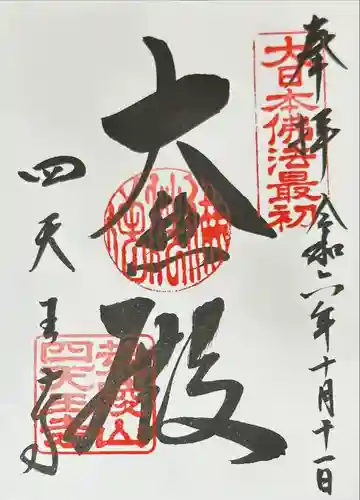 奉拝 令和六年十月十一日
大日本佛法最初
大黒殿
四天王寺
荒陵山
四天王寺